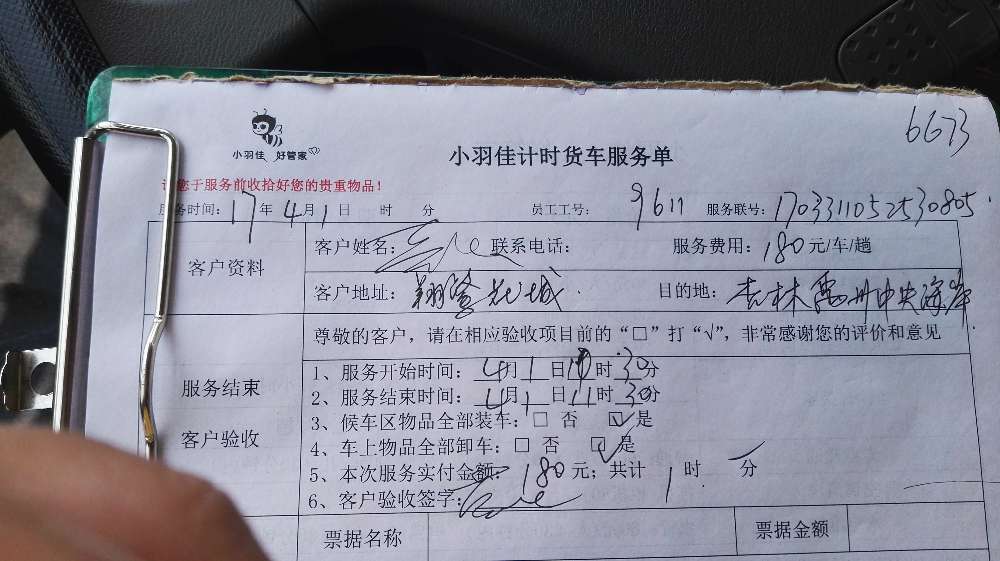 6673
小羽佳 好管家
小羽佳计时货车服务单
您于服务前收拾好您的贵重物品!
服务时间: 17年4月1日 时 分 员工工号: 9611 服务联号: 1703311052530805
客户资料
客户姓名: 联系电话: 服务费用: 180元/车/趟
客户地址: 翔鹭花城 目的地: 杏林禹州中央海岸
尊敬的客户，请在相应验收项目前的“□”打“√”，非常感谢您的评价和意见
服务结束
客户验收
1、服务开始时间: 4月1日10时30分
2、服务结束时间: 4月1日11时30分
3、候车区物品全部装车: □ 否 ☑ 是
4、车上物品全部卸车: □ 否 ☑ 是
5、本次服务实付金额: 180元; 共计 1时 分
6、客户验收签字:
票据名称 票据金额